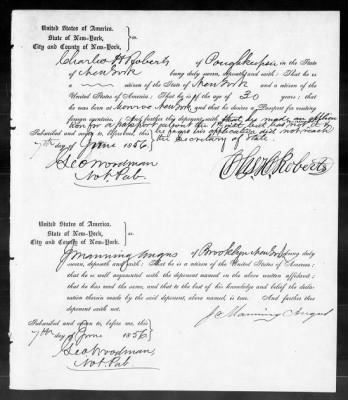 United States of America.
State of New-York,
City and County of New-York.
ss.
Charles H Roberts of Poughkeepsie in the State
of New York being duly sworn, deposeth and saith: That he is
a citizen of the State of New York and a citizen of the
United States of America; That he is of the age of 30 years; that
he was born at Monroe New York and that he desires a Passport for visiting
foreign countries. And further this deponent saith that he made an application
for a passport
he fears his application did not reach
the Secretary of State
Subscribed and sworn to, before me, this
7th day of June 1856
Leo Woodman
Not. Pub.
Chas H Roberts
United States of America.
State of New-York,
City and County of New-York.
ss.
J Manning Angus of Brooklyn New York being duly
sworn, deposeth and saith: That he is a citizen of the United States of America;
that he is well acquainted with the deponent named in the above written affidavit;
that he has read the same, and that to the best of his knowledge and belief the declaration
therein made by the said deponent, above named, is true. And further this
deponent saith not.
J Manning Angus
Subscribed and sworn to, before me, this
7th day of June 1856
Leo Woodman,
Not. Pub